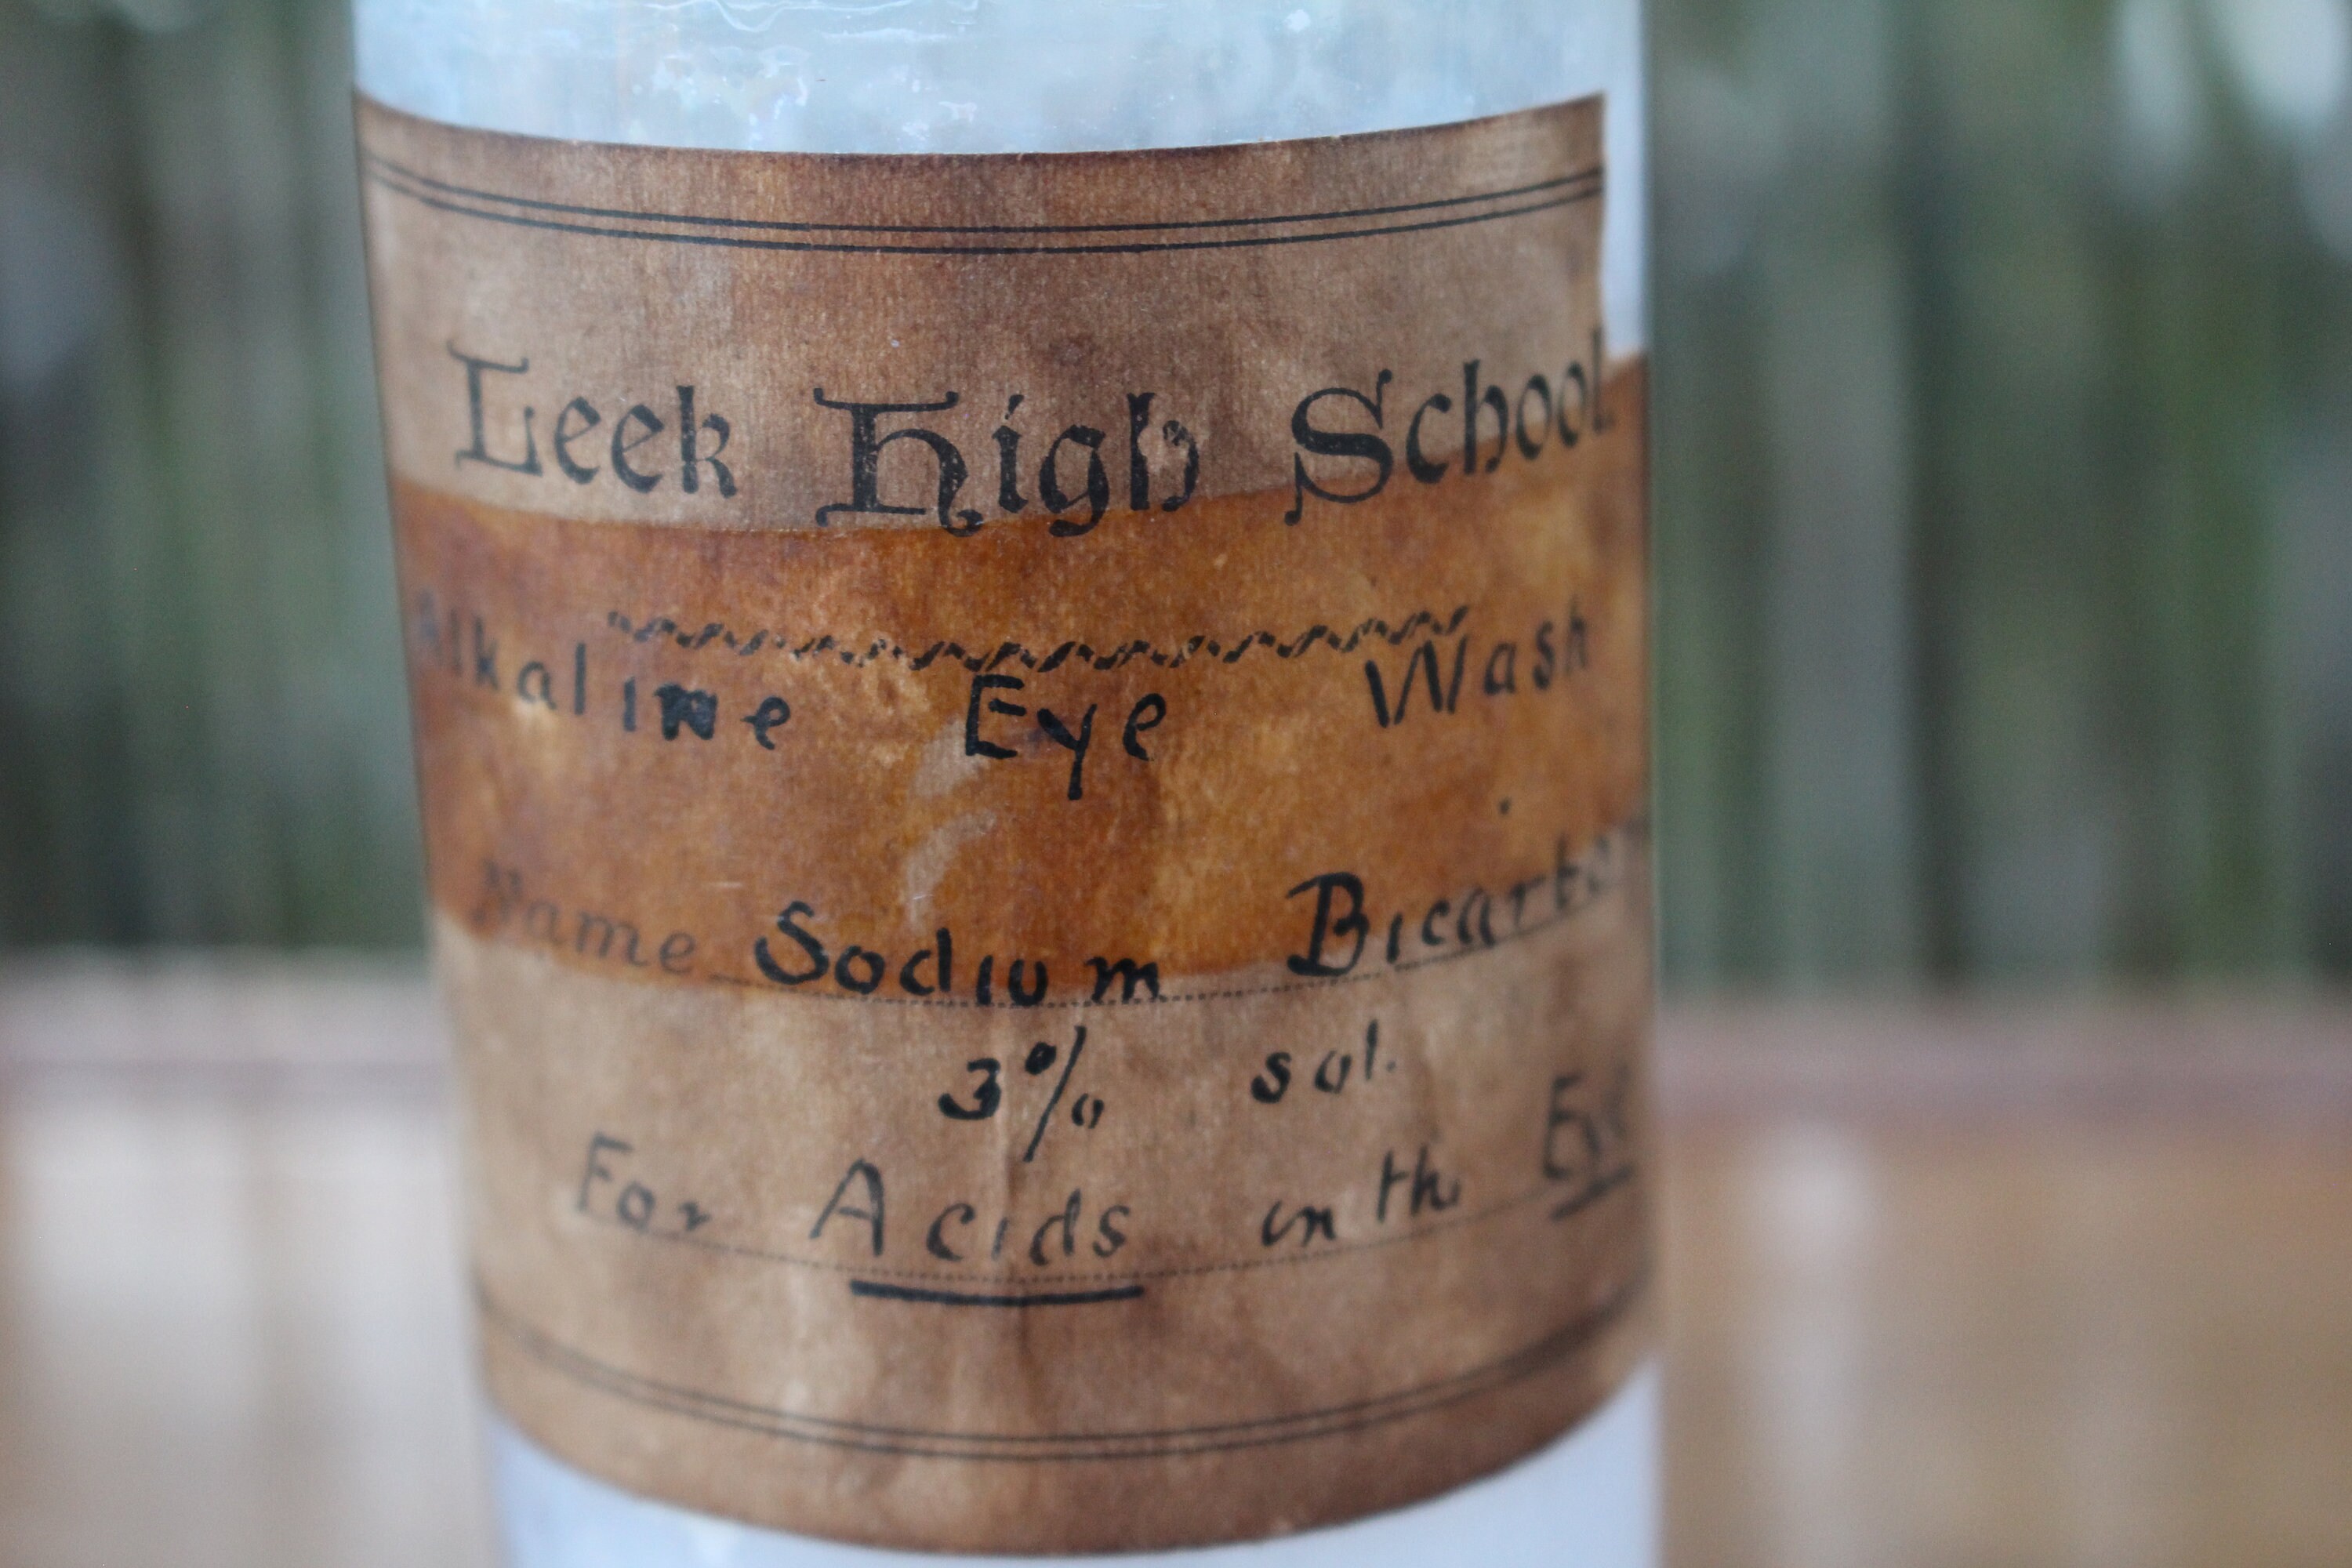 Leek High School.
Alkaline Eye Wash
Name Sodium Bicarbon
3% sol.
For Acids in the Eye